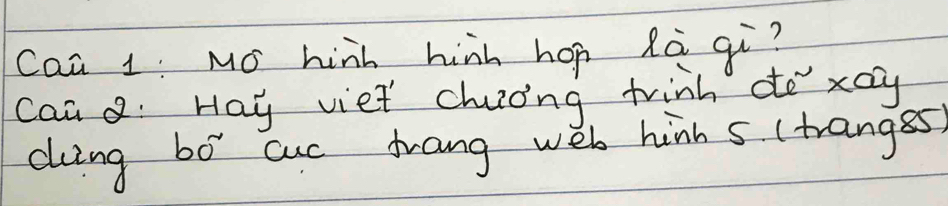 Câu 1: Mô hình hình hộp là gì?
Câu 2: Hãy viết chương trình để xây
dựng bố cục trang web hình 5. (trang 85)